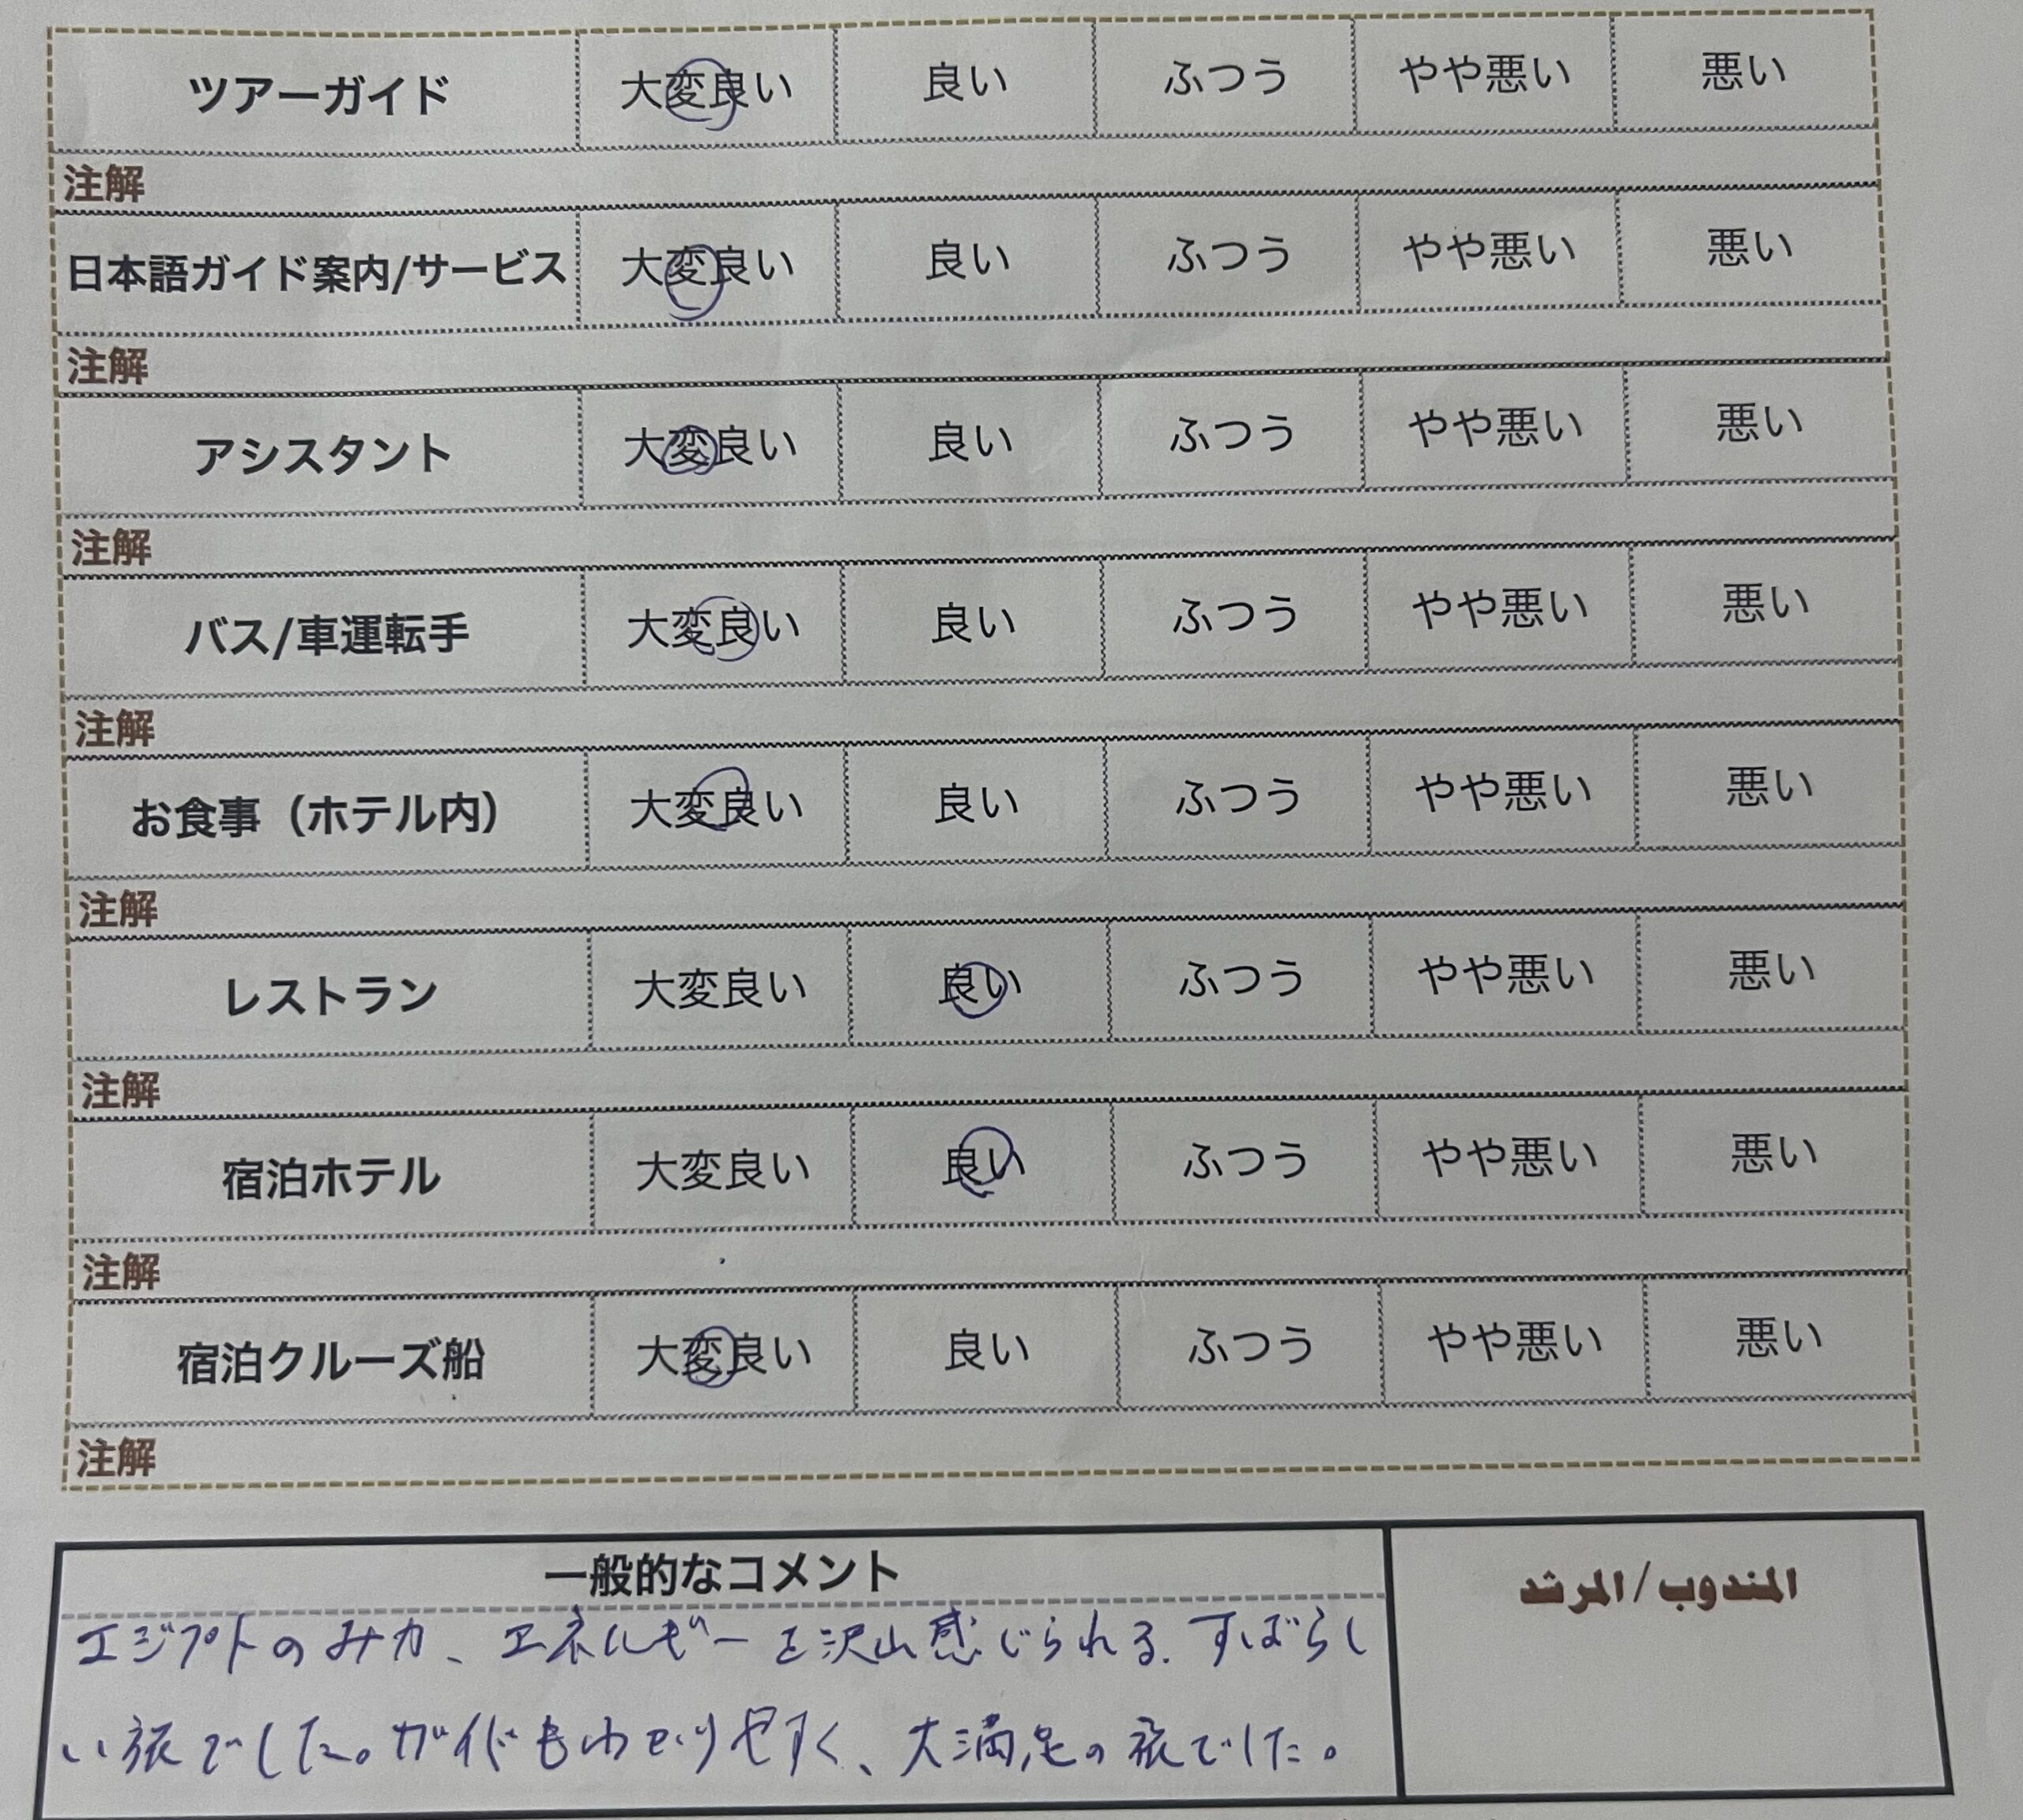 ツアーガイド 大変良い 良い ふつう やや悪い 悪い
注解
日本語ガイド案内/サービス 大変良い 良い ふつう やや悪い 悪い
注解
アシスタント 大変良い 良い ふつう やや悪い 悪い
注解
バス/車運転手 大変良い 良い ふつう やや悪い 悪い
注解
お食事（ホテル内） 大変良い 良い ふつう やや悪い 悪い
注解
レストラン 大変良い 良い ふつう やや悪い 悪い
注解
宿泊ホテル 大変良い 良い ふつう やや悪い 悪い
注解
宿泊クルーズ船 大変良い 良い ふつう やや悪い 悪い
注解
一般的なコメント
المندوب/المرشد
エジプトのみ力、エネルギーを沢山感じられる、すばらし
い旅でした。ガイドもわかりやすく、大満足の旅でした。